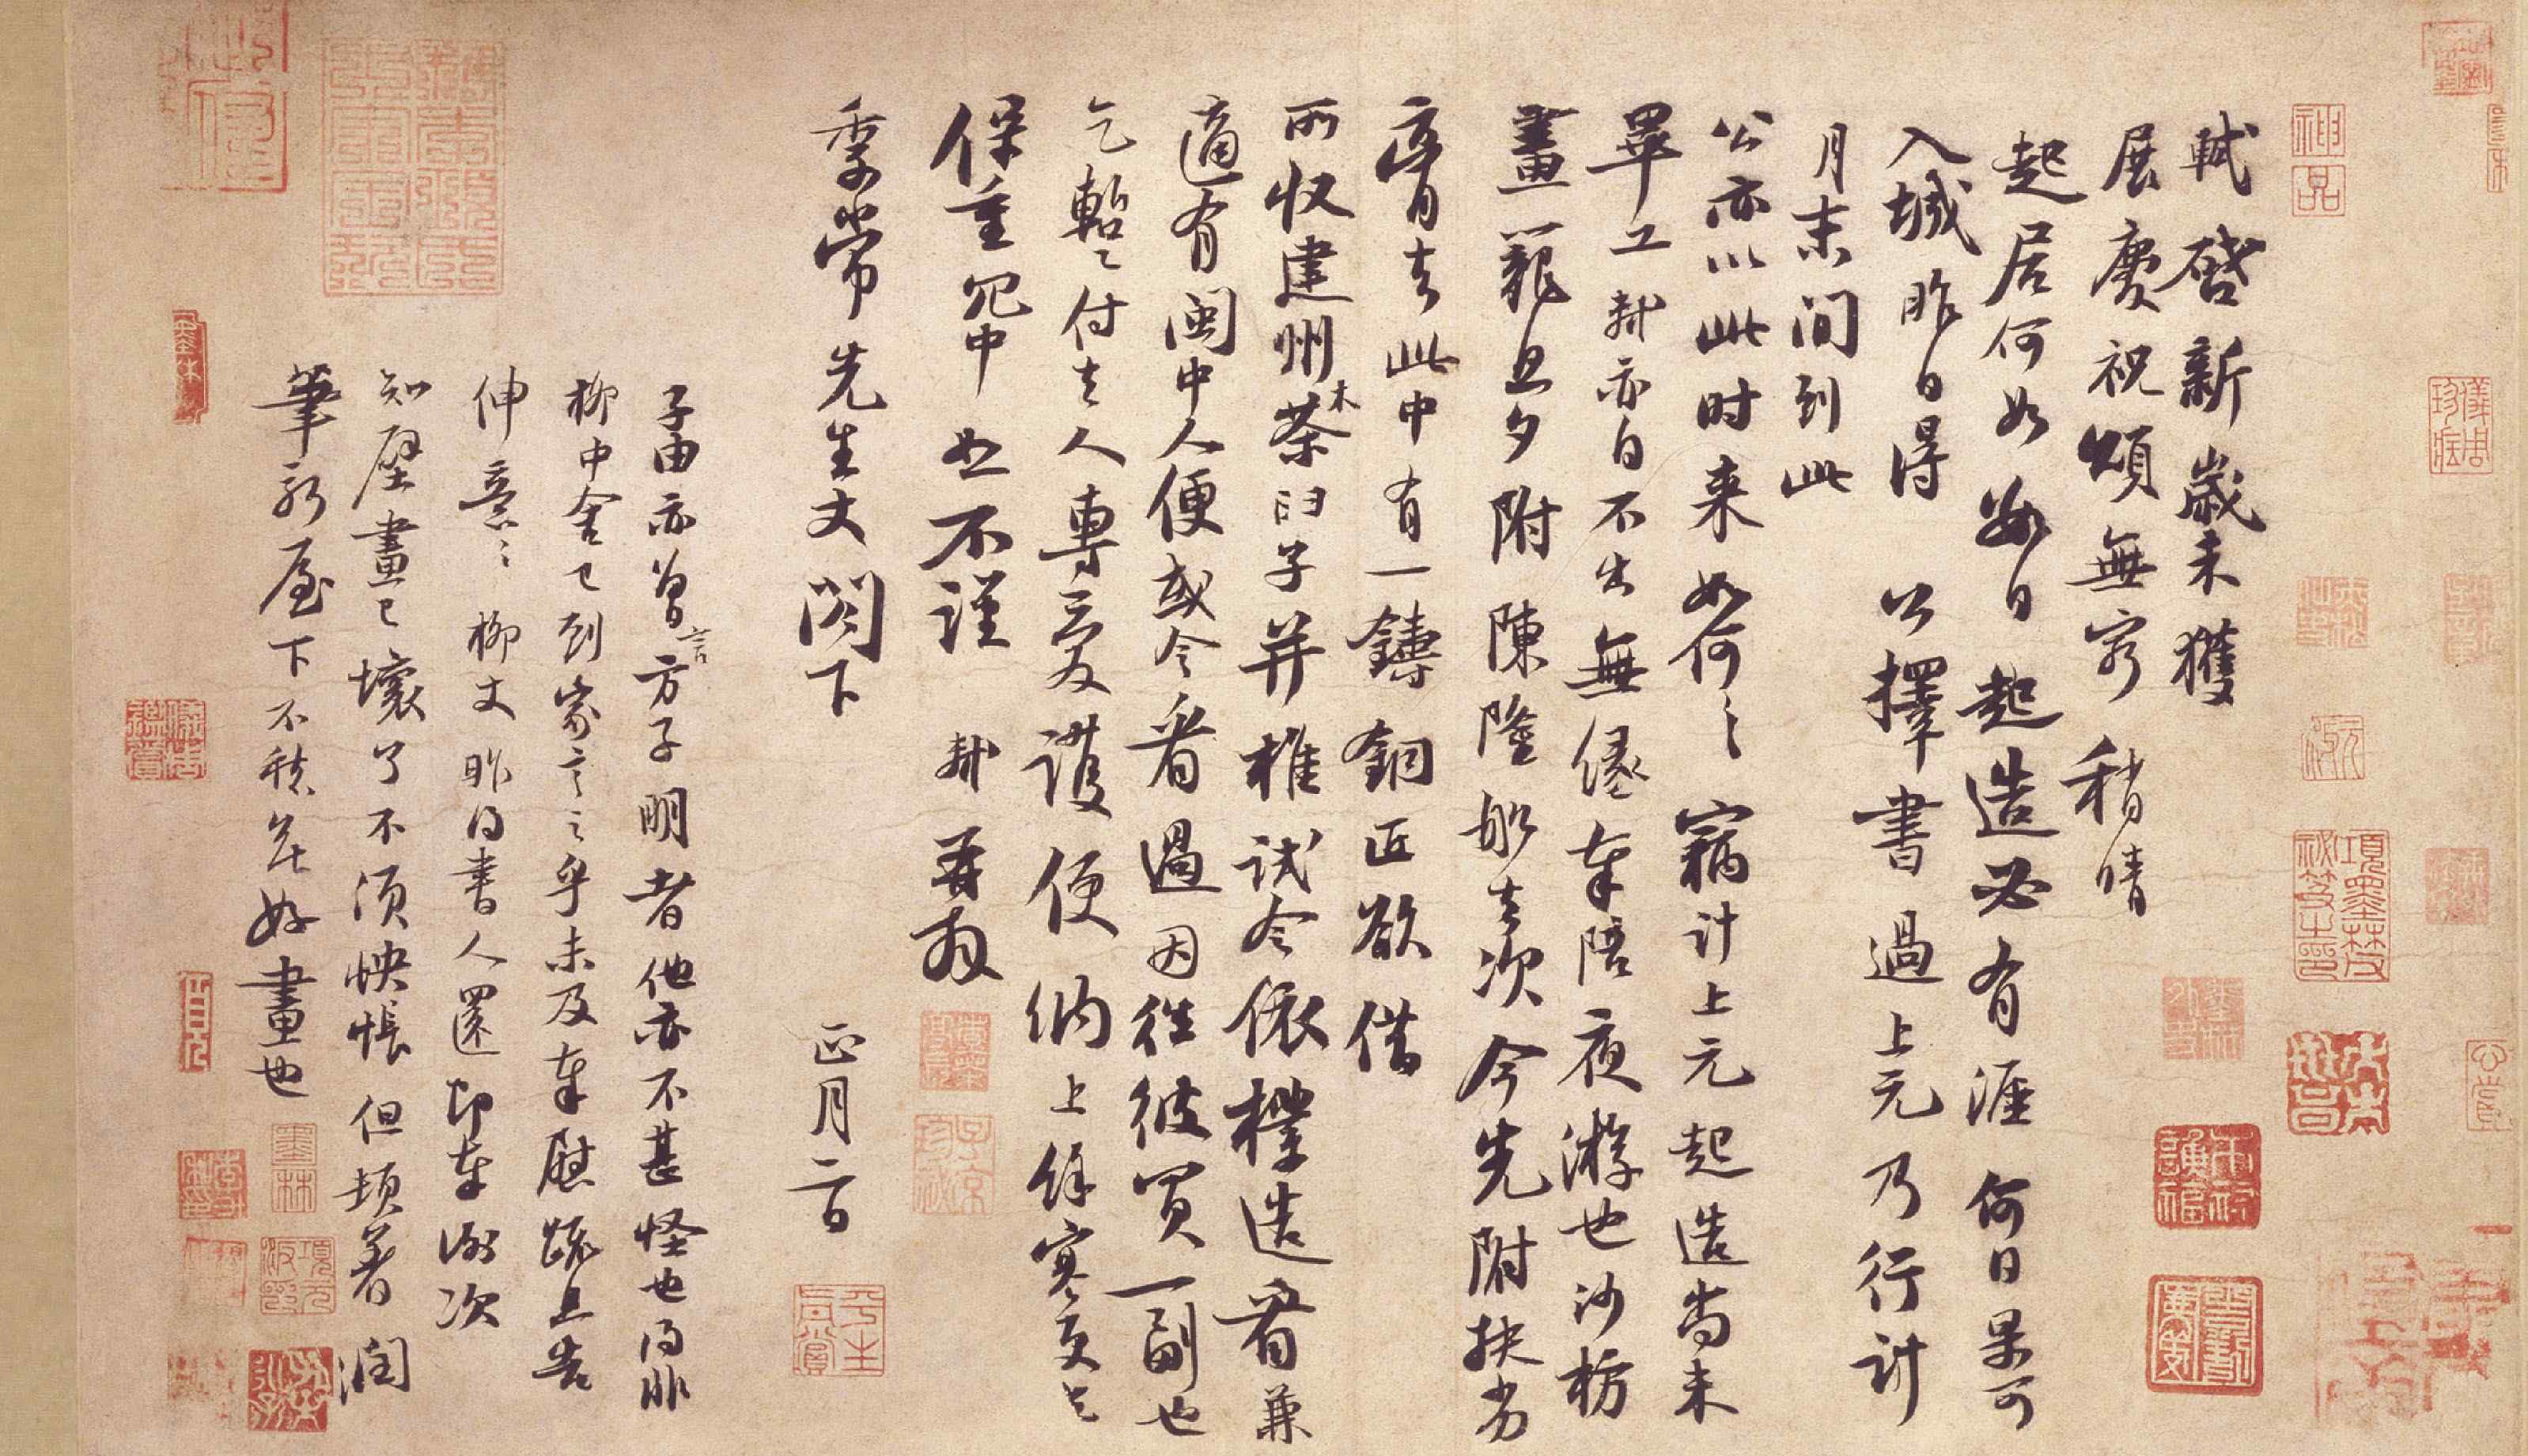 軾啓新歲未獲
展慶祝頌無窮稍晴
起居何如數日起造必有涯何日果可
入城昨日得公擇書過上元乃行計
月末間到此
公亦以此時来如何ゝ竊計上元起造尚未
畢工軾亦自不出無緣奉陪夜游也沙枋
畫籠旦夕附陳隆船去次今先附扶劣
膏去此中有一鑄銅匠欲借
所收建州木茶臼子并椎試令依樣造看兼
適有閩中人便或令看過因往彼買一副也
乞暫付去人專愛護便納上餘寒更乞
保重冗中恕不謹軾再拜
季常先生丈閣下
正月二日
子由亦曾言方子明者他亦不甚怪也得非
柳中舍已到家言之乎未及奉慰疏且告
伸意ゝ柳丈昨得書人還即奉謝次
知壁畫已壞了不須怏悵但頓著潤
筆新屋下不愁無好畫也